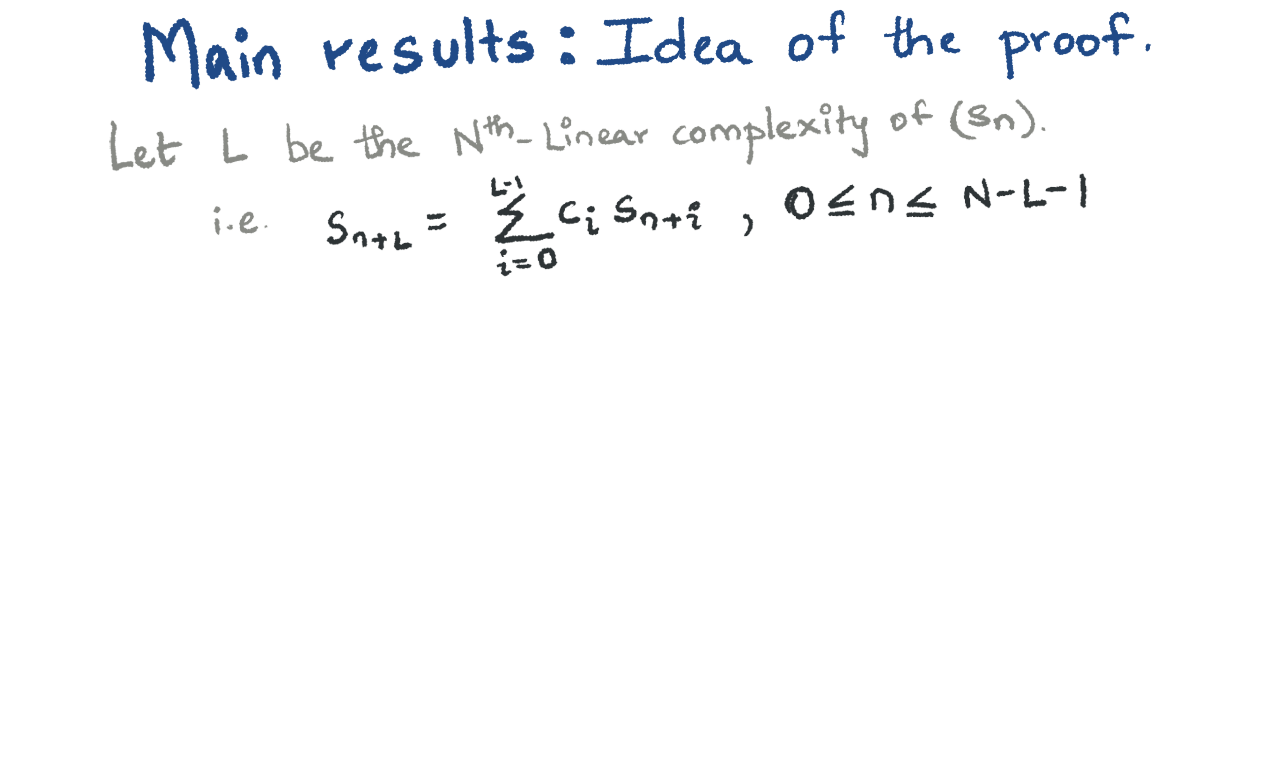 Main results: Idea of the proof.
Let L be the Nᵗʰ-Linear complexity of (Sn).
i.e. S_{n+L} = \sum_{i=0}^{L-1} c_i S_{n+i} , 0 ≤ n ≤ N-L-1